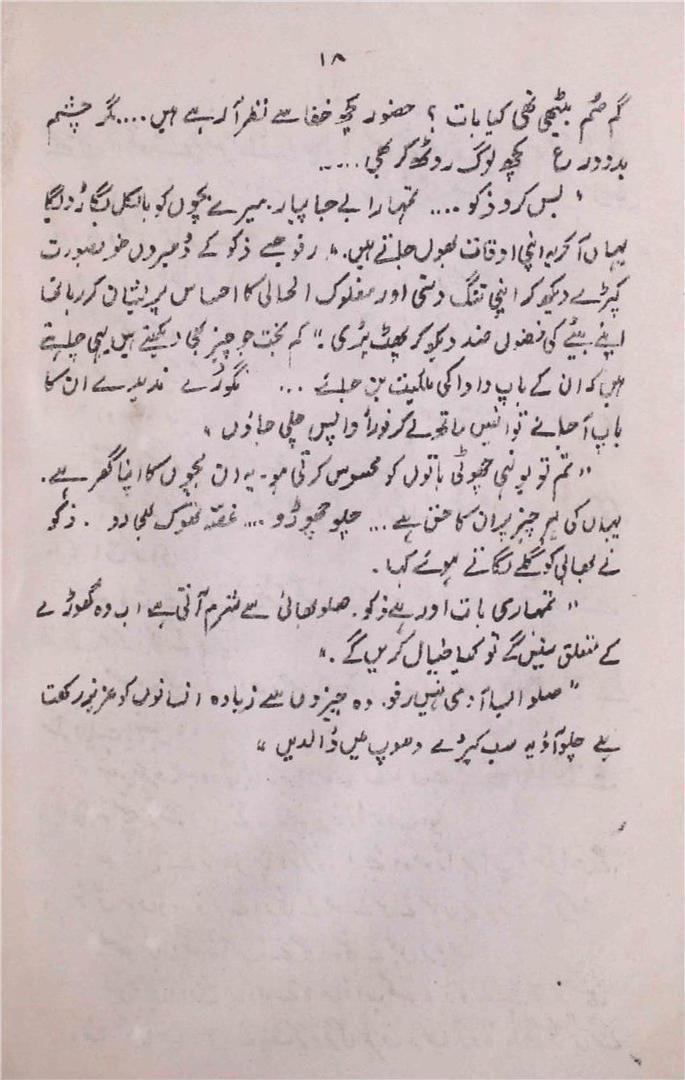 ۱۸
گم صُم بیٹھی تھی کیا بات ؟ حضور کچھ خفا سے نظر آ رہے ہیں .... مگر چشم
بددور ع کچھ لوگ روٹھ کر بھی .....
" بس کرو ذکو .... تمہارا بے جا پیار میرے بچوں کو بالکل بگاڑ دیگا
یہاں آ کر یہ اپنی اوقات بھول جاتے ہیں . " رفو جسے ذکو کے ڈھیروں خوبصورت
کپڑے دیکھ کر اپنی تنگ دستی اور مفلوک الحالی کا احساس پریشان کر رہا تھا
اپنے بیٹے کی فضول ضد دیکھ کر پھٹ پڑی . " کم بخت جو چیز بھی دیکھتے ہیں یہی چاہتے
ہیں کہ ان کے باپ دادا کی ملکیت بن جائے ... نگوڑے ندیدے ان کا
باپ آ جائے تو انہیں ساتھ لے کر فوراً واپس چلی جاؤں "
" تم تو یونہی چھوٹی باتوں کو محسوس کرتی ہو - یہ ان بچوں کا اپنا گھر ہے .
یہاں کی ہر چیز پر ان کا حق ہے ... چلو چھوڑو .... غصّہ تھوک بھی دو . ذکو
نے بھابی کو گلے لگاتے ہوئے کہا .
" تمہاری بات اور ہے ذکو . صلو بھائی سے شرم آتی ہے اب وہ گھوڑے
کے متعلق سنیں گے تو کیا خیال کریں گے . "
" صلو ایسا آدمی نہیں رفو . وہ چیزوں سے زیادہ انسانوں کو عزیز رکھتا
ہے چلو آؤ یہ سب کپڑے دھوپ میں ڈالدیں "